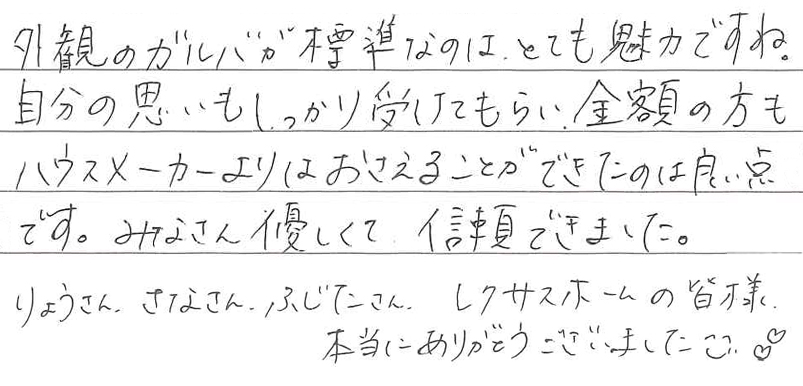 外観のガルバが標準なのは、とても魅力ですね。
自分の思いもしっかり受けてもらい、金額の方も
ハウスメーカーよりはおさえることができたのは良い点
です。みなさん優しくて、信頼できました。
りょうさん、さなさん、ふじたさん、レクサスホームの皆様、
本当にありがとうございました